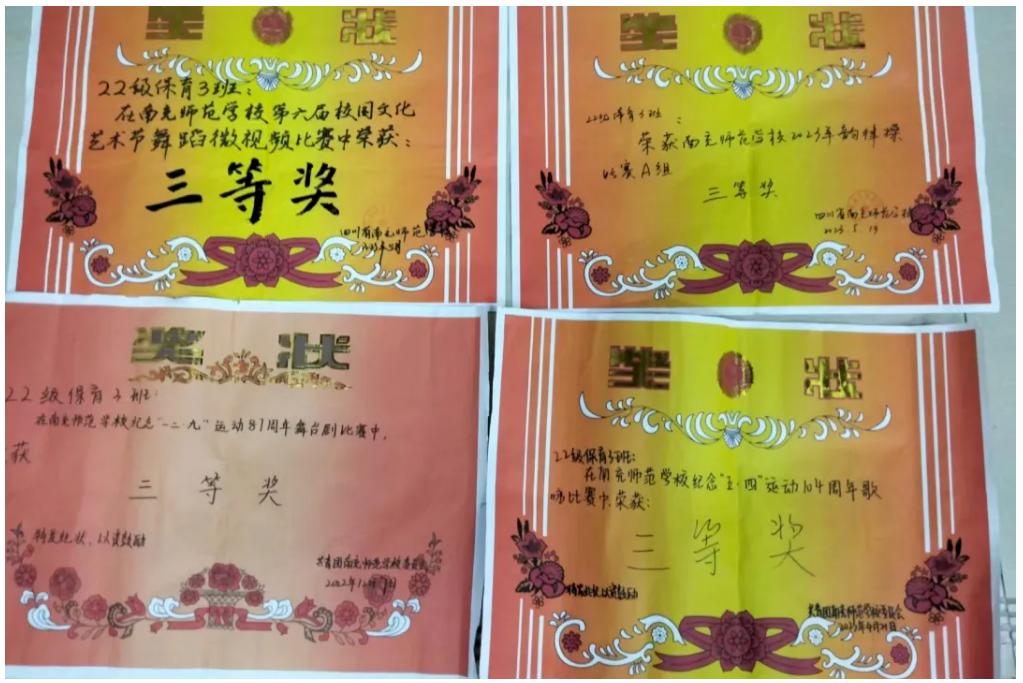 奖 状
22级保育3班：
在南充师范学校第六届校园文化
艺术节舞蹈微视频比赛中荣获：
三等奖
四川省南充师范学校
奖 状
22级保育3班：
荣获南充师范学校2023年韵律操
比赛A组
三等奖
四川省南充师范学校
2023.5.19
奖 状
22级保育3班：
在南充师范学校纪念"一二·九"运动87周年舞台剧比赛中，
获
三 等 奖
特发此状，以资鼓励
共青团南充师范学校委员会
奖 状
22级保育3班：
在南充师范学校纪念"五·四"运动104周年歌
咏比赛中，荣获：
三 等 奖
特发此状，以资鼓励
共青团南充师范学校委员会